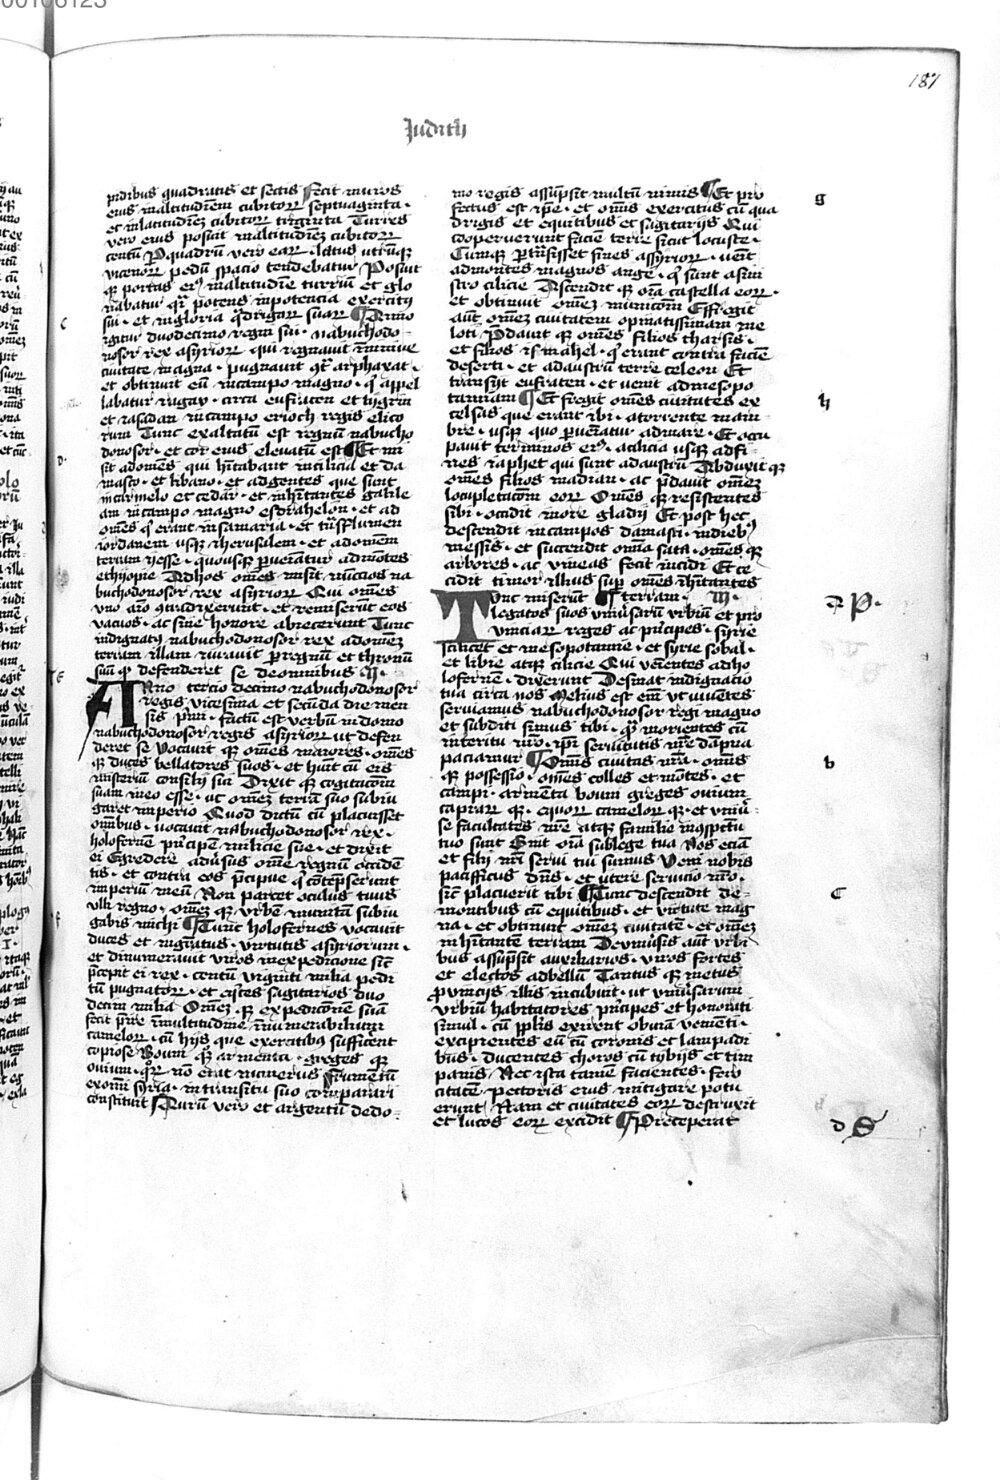 187
Judith
pidibus quadratis et sectis Fecit muros
eius in altitudinem cubitorum septuaginta ·
et in latitudinez cubitorum triginta Turres
vero eius posuit in altitudinez cubitorum
centum Per quadrum vero earum · latus utrumque
vicenorum pedum spacio tendebatur Posuit
que portas eius in altitudinem turrium et glo
riabatur quasi potens in potencia exercitus
sui · et in gloria quadrigarum suarum Anno
igitur duodecimo regni sui · nabuchodo-
nosor rex asyriorum qui regnauit in niniue
ciuitate magna · pugnauit contra arphaxat ·
et obtinuit eum in campo magno · qui appel
labatur ragau · circa eufraten et tygrim
et iasadan in campo erioch regis elico
rum Tunc exaltatum est regnum nabucho
donosor · et cor eius eleuatum est Et mi
sit ad omnes qui habitabant in cilicia et da
masco · et libano · et ad gentes que sunt
in carmelo et cedar · et inhabitantes galile
am in campo magno esdrahelon · et ad
omnes qui erant in samaria · et trans flumen
iordanem usque iherusalem · et ad omnem
terram iesse · quousque perueniatur ad montes
ethiopie Ad hos omnes misit nuncios na
buchodonosor rex asyriorum Qui omnes
vno animo contradixerunt · et remiserunt eos
vacuos · ac sine honore abiecerunt Tunc
indignatus nabuchodonosor rex ad omnez
terram illam iurauit per regnum et thronum
suum quod defenderet se de omnibus II ·
Anno tercio decimo nabuchodonosor
regis vicesima et secunda die men
sis primi · factum est verbum in domo
nabuchodonosor regis asyriorum ut defen
deret se Vocauit que omnes maiores · omnes
que duces bellatores suos · et habuit cum eis
misterium consilij sui Dixit que cogitacionem
suam in eo esse · ut omnez terram suo subiu
garet imperio Quod dictum cum placuisset
omnibus · vocauit nabuchodonosor rex ·
holofernem principem milicie sue · et dixit
ei Egredere aduersus omne regnum occiden
tis · et contra eos precipue qui contempserunt
imperium meum Non parcet oculus tuus
vlli regno · omnez que vrbem munitam subiu
gabis michi Tunc holofernes vocauit
duces et magistratus · virtutis asyriorum ·
et dinumerauit viros in expedicione sicut
precepit ei rex · centum viginti milia pedi
tum pugnatorum · et equites sagitarios duo
decim milia Omnez que expedicionem suam
fecit preire in multitudine innumerabilium
camelorum · cum hijs que exercitibus sufficerent
copiose Boum que armenta · greges que
ouium · quorum non erat numerus Frumentum
ex omni syria · in transitu suo comparari
constituit Aurum vero et argentum de do-
mo regis assumpsit multum nimis Et pro
fectus est ipse · et omnis exercitus cum qua
drigis et equitibus et sagitarijs Qui
cooperuerunt faciem terre sicut locuste ·
Cumque pertransisset fines assyriorum · uenit
ad montes magnos ange · qui sunt a sini
stro cilicie Ascendit que omnia castella eorum ·
et obtinuit omnez municionem Effregit
autem omnez ciuitatem opinatissimam me
loti Predauit que omnes filios tharsis ·
et filios ismahel · qui erant contra faciem
deserti · et ad austrum terre celeon Et
transijt eufraten · et venit ad mesopo
tamiam Et fregit omnes ciuitates ex
celsas que erant ibi · a torrente mam
bre · usque quo perueniatur ad mare · Et occu
pauit terminos eius · a cilicia usque ad fi-
nes iaphet qui sunt ad austrum Abduxit que
omnes filios madian · ac predauit omnez
locupletacionem eorum Omnes que resistentes
sibi · occidit in ore gladij Et post hec
descendit in campos damasci · in diebus
messis · et succendit omnia sata · omnes que
arbores · ac vineas fecit incidi Et ce
cidit timor illius super omnes inhabitantes
Tunc miserunt terram · III ·
legatos suos vniuersarum vrbium et pro
vinciarum reges ac principes · syrie
scilicet et mesopotamie · et syrie sobal ·
et libie atque cilicie Qui venientes ad ho
lofernem · dixerunt Desinat indignacio
tua circa nos Melius est enim vt viuentes
seruiamus nabuchodonosor regi magno
et subditi simus tibi · quam morientes cum
interitu nostro · ipsi seruitutis nostre dampna
paciamur Omnis ciuitas nostra · omnis
que possessio · omnes colles et montes · et
campi · armenta boum greges ouium
caprarum que · equorum camelorum que · et vniuer-
se facultates nostre atque familie in conspectu
tuo sunt Sint omnia sub lege tua Nos eciam
et filij nostri serui tui sumus Veni nobis
pacificus dominus · et utere seruicio nostro ·
sicut placuerit tibi Tunc descendit de-
montibus cum equitibus · et virtute mag
na · et obtinuit omnez ciuitatem · et omnez
inhabitantem terram De vniuersis autem vrbi
bus assumpsit auxiliarios · viros fortes
et electos ad bellum Tantus que metus
prouincijs illis incubuit · ut vniuersarum
vrbium habitatores principes et honorati
simul · cum populis exirent obuiam venienti ·
excipientes eum cum coronis et lampadi
bus · ducentes choros cum tybijs et tim
panis Nec ista tamen facientes · fero
citatem pectoris eius mitigare potu
erunt Nam et ciuitates eorum destruxit
et lucos eorum excidit Preceperat
g
h
b
c
d